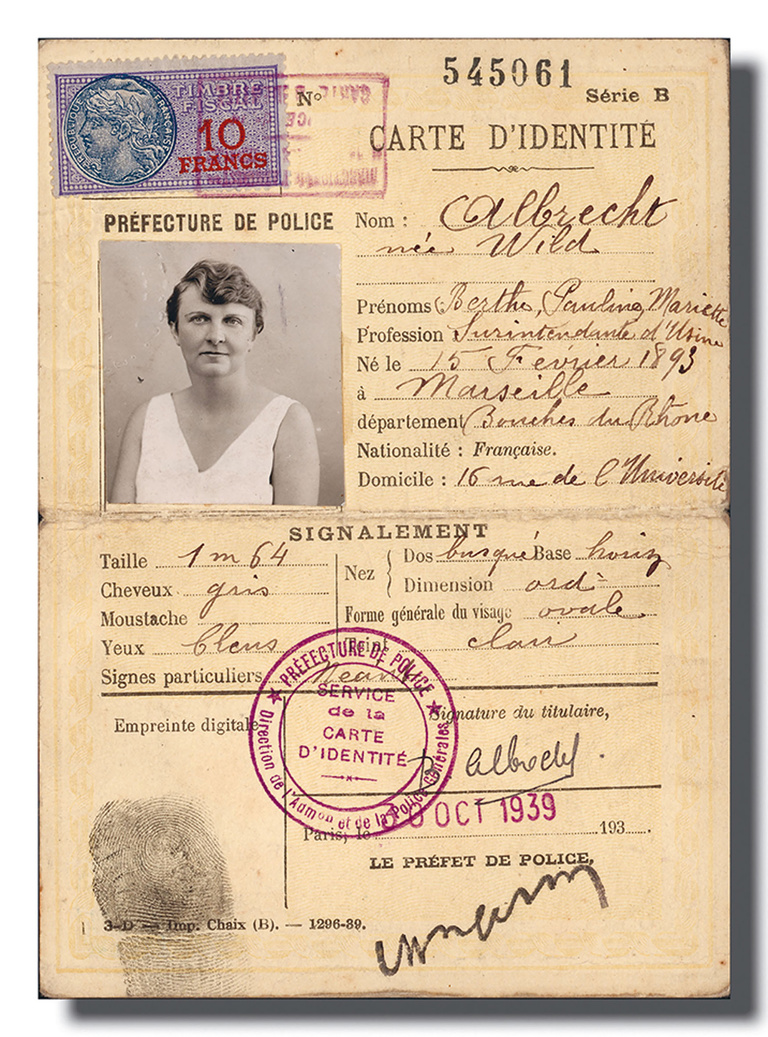 545061
Nº
Série B
TIMBRE
FISCAL
10
FRANCS
RÉPUBLIQUE FRANÇAISE
CARTE D'IDENTITÉ
PRÉFECTURE DE POLICE
Nom : Albrecht
née Wild
Prénoms Berthe, Pauline, Mariette
Profession Surintendante d'Usine
Né le 15 Février 1893
à Marseille
département Bouches du Rhône
Nationalité : Française.
Domicile : 16 rue de l'Université
SIGNALEMENT
Taille 1 m 64
Cheveux gris
Moustache
Yeux bleus
Signes particuliers Neant
Nez
Dos busqué Base horiz
Dimension ord
Forme générale du visage ovale
Teint clair
PRÉFECTURE DE POLICE
Direction de l'Admon et de la Police Générales
SERVICE
de la
CARTE
D'IDENTITÉ
Empreinte digitale
Signature du titulaire,
Albrecht
OCT 1939
Paris, le 193
LE PRÉFET DE POLICE,
3-D — Imp. Chaix (B). — 1296-39.